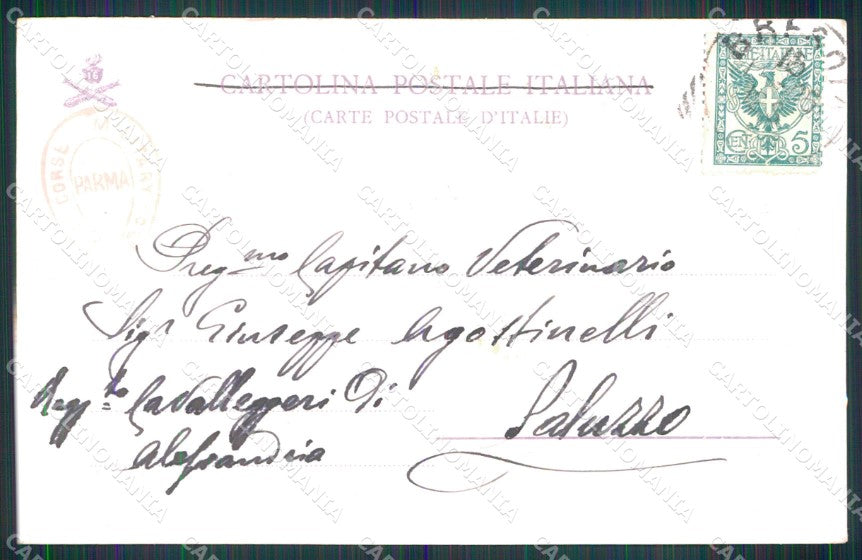 CARTOLINA POSTALE ITALIANA
(CARTE POSTALE D'ITALIE)
16
PARMA
CORSE
POSTE ITALIANE
CENT. 5
Preg.mo Capitano Veterinario
Sigr Giuseppe Agostinelli
Regg.to Cavalleggeri Di
Alessandria
Saluzzo
CARTOLINOMANIA